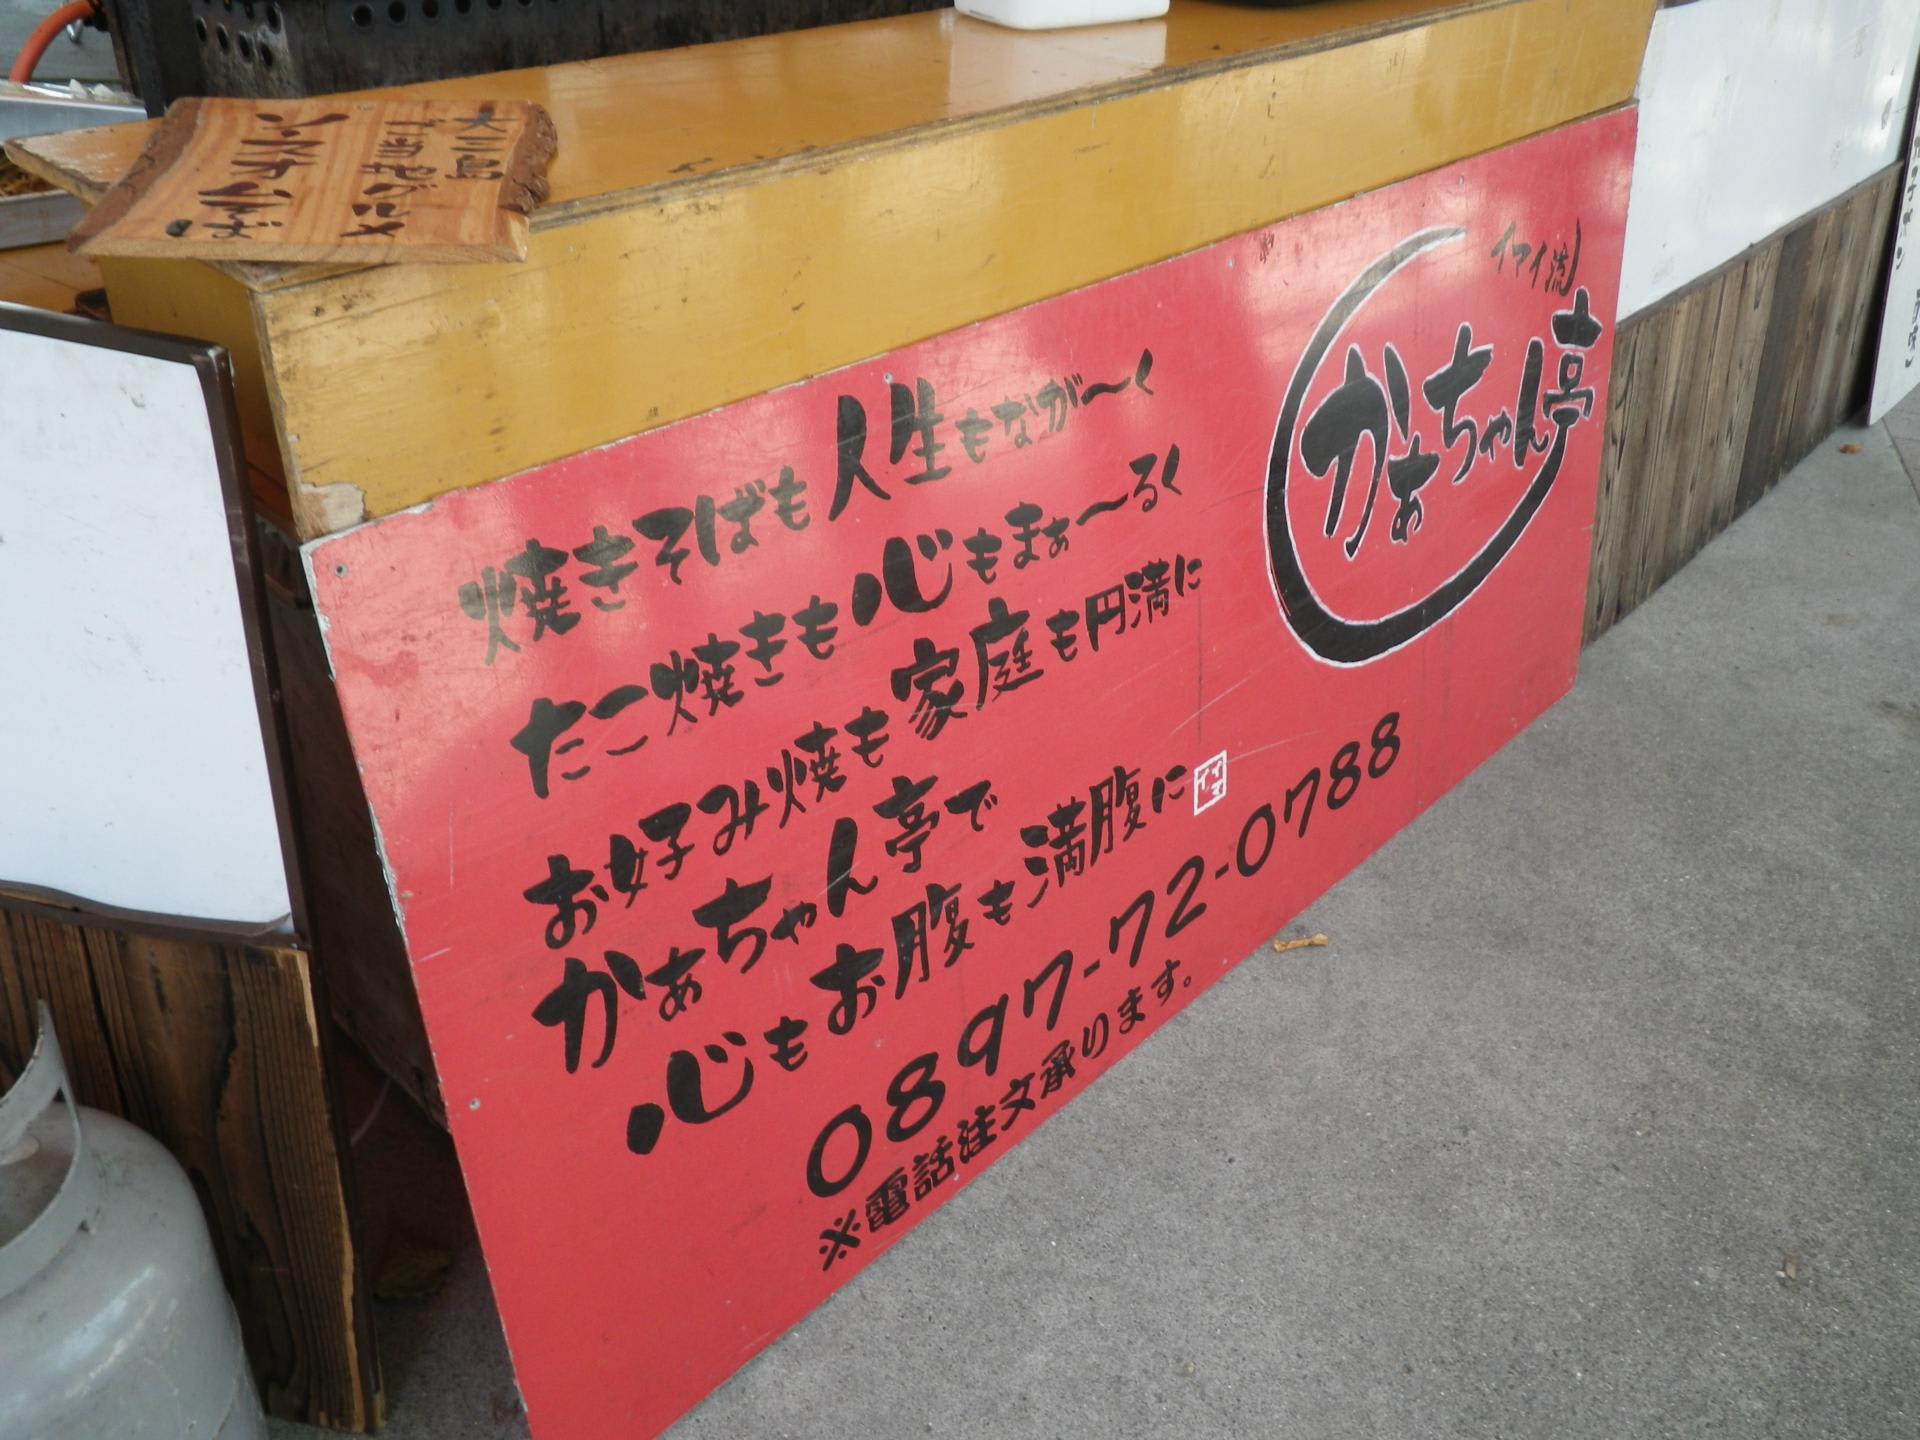 大三島
ご当地グルメ
ソースオムそば
イマイ流
かぁちゃん亭
焼きそばも人生もなが〜く
たこ焼きも心もまぁ〜るく
お好み焼も家庭も円満に
かぁちゃん亭で
心もお腹も満腹に
イマイ
0897-72-0788
※電話注文承ります。